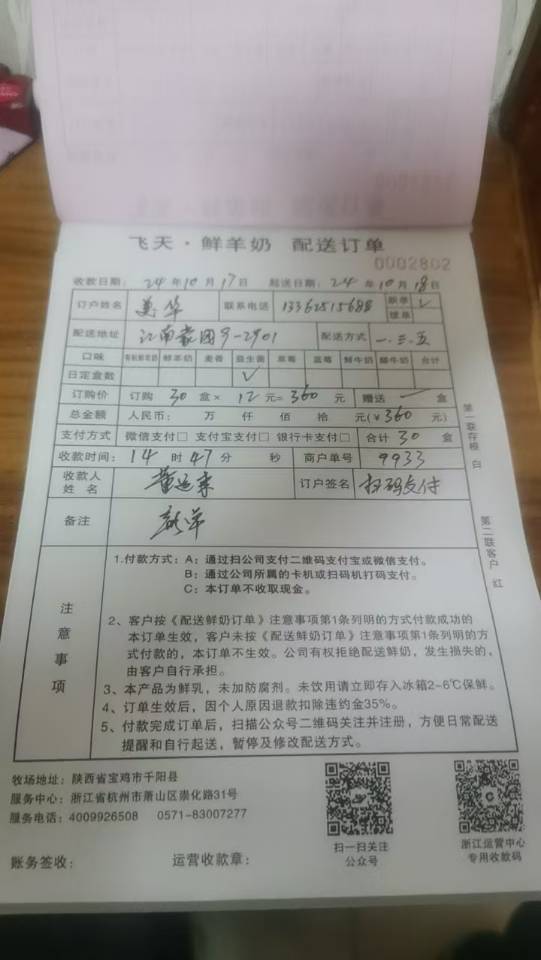 飞天·鲜羊奶 配送订单
0002802
收款日期: 24 年 10 月 17 日 起送日期: 24 年 10 月 18 日
订户姓名 美华 联系电话 13362515688 新单 √
续单
配送地址 江南家园9-2901 配送方式 一.三.五
口味 有机鲜羊奶 鲜羊奶 麦香 益生菌 草莓 蓝莓 鲜牛奶 酸牛奶 合计
日定盒数 √
订购价 订购 30 盒× 12 元= 360 元 赠送 — 盒
总金额 人民币: 万 仟 佰 拾 元(¥360 元)
支付方式 微信支付□ 支付宝支付□ 银行卡支付□ 合计 30 盒
收款时间: 14 时 47 分 秒 商户单号 9933
收款人
姓 名 订户签名 扫码支付
备注 新单
第一联存根 白
第二联客户 红
注意事项
1.付款方式: A: 通过扫公司支付二维码支付宝或微信支付。
B: 通过公司所属的卡机或扫码机打码支付。
C: 本订单不收取现金。
2、客户按《配送鲜奶订单》注意事项第1条列明的方式付款成功的
本订单生效, 客户未按《配送鲜奶订单》注意事项第1条列明的方
式付款的, 本订单不生效。公司有权拒绝配送鲜奶, 发生损失的,
由客户自行承担。
3、本产品为鲜乳, 未加防腐剂。未饮用请立即存入冰箱2-6℃保鲜。
4、订单生效后, 因个人原因退款扣除违约金35%。
5、付款完成订单后, 扫描公众号二维码关注并注册, 方便日常配送
提醒和自行起送, 暂停及修改配送方式。
牧场地址: 陕西省宝鸡市千阳县
服务中心: 浙江省杭州市萧山区崇化路31号
服务电话: 4009926508 0571-83007277
扫一扫关注
公众号
浙江运营中心
专用收款码
账务签收: 运营收款章: